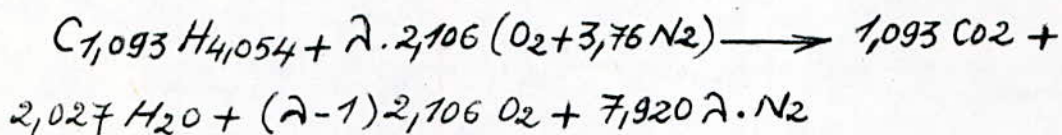 C1,093 H4,054 + λ. 2,106 (O2+3,76 N2) ⟶ 1,093 CO2 +
2,027 H2O + (λ-1) 2,106 O2 + 7,920 λ. N2